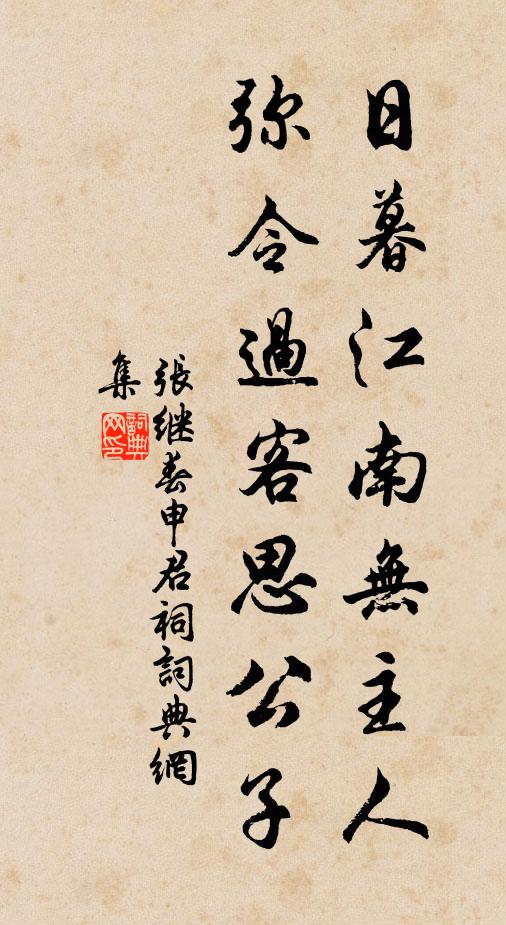 日暮江南無主人
弥令過客思公子
張继春申君祠詞典網
集
詞典
网印